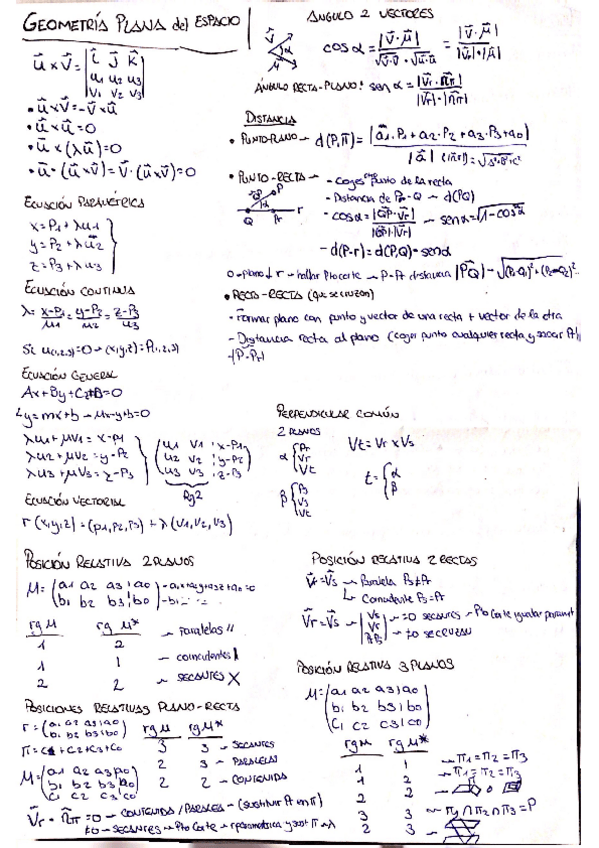 GEOMETRÍA PLANA del ESPACIO
u⃗ x v⃗ = | i⃗ j⃗ k⃗ |
| u1 u2 u3 |
| v1 v2 v3 |
• u⃗ x v⃗ = -v⃗ x u⃗
• u⃗ x u⃗ = 0
• u⃗ x (λu⃗) = 0
• u⃗ · (u⃗ x v⃗) = v⃗ · (u⃗ x v⃗) = 0
ECUACIÓN PARAMÉTRICA
x = P1 + λu1
y = P2 + λu2
z = P3 + λu3
ECUACIÓN CONTINUA
λ = x-P1/u1 = y-P2/u2 = z-P3/u3
Si u(1,2,3) = 0 → (x,y,z) = P1,2,3
ECUACIÓN GENERAL
Ax + By + Cz + D = 0
y = mx + b → mx - y + b = 0
λu1 + μv1 = x - P1
λu2 + μv2 = y - P2
λu3 + μv3 = z - P3
( u1 v1 | x-P1 )
( u2 v2 | y-P2 )
( u3 v3 | z-P3 )
Rg2
ECUACIÓN VECTORIAL
r (x,y,z) = (P1, P2, P3) + λ (v1, v2, v3)
ÁNGULO 2 VECTORES
v⃗ α u⃗
cos α = |v⃗ · u⃗| / √v⃗·v⃗ · √u⃗·u⃗ = |v⃗ · u⃗| / |v⃗| · |u⃗|
ÁNGULO RECTA-PLANO: sen α = |v⃗r · n⃗π| / |v⃗r| · |n⃗π|
DISTANCIA
• PUNTO-PLANO → d(P,π) = |a1·P1 + a2·P2 + a3·P3 + a0| / |a⃗|
• PUNTO-RECTA → - Coges punto de la recta
- Distancia de - Q → d(PQ)
Q Pr r
- cos α = |QP · Vr| / |QP| · |Vr| → sen α = √1-cos²α
- d(P-r) = d(P,Q) · sen α
o - plano ⊥ r → hallar Pto corte → P-Pt distancia |PQ|
• RECTA-RECTA (que se cruzan)
- Formar plano con punto y vector de una recta + vector de la otra
- Distancia recta al plano (coger punto cualquier recta y sacar
PERPENDICULAR COMÚN
2 PLANOS
α { Pr Vr Vt
β { Ps Vs Vt
Vt = Vr x Vs
t = { α β
POSICIÓN RELATIVA 2 PLANOS
M = ( a1 a2 a3 | a0 )
( b1 b2 b3 | b0 )
rg M rg M*
1 2 → Paralelas //
1 1 → coincidentes
2 2 → SECANTES X
POSICIONES RELATIVAS PLANO-RECTA
r = ( a1 a2 a3 | a0 )
( b1 b2 b3 | b0 )
π = C1 + C2 + C3 + C0
M = ( a1 a2 a3 | a0 )
( b1 b2 b3 | b0 )
( c1 c2 c3 | c0 )
rg M rg M*
3 3 → SECANTES
2 3 → PARALELAS
2 2 → CONTENIDA
V⃗r · n⃗π = 0 → CONTENIDA / PARALELA → (sustituir Pt en π)
≠0 → SECANTES → Pto Corte → r paramétrica
POSICIÓN RELATIVA 2 RECTAS
V⃗r = V⃗s → Paralela Ps ∉ r
↳ Coincidente
V⃗r ≠ V⃗s → =0 SECANTES → Pto Corte igualar
→ ≠0 SE CRUZAN
POSICIÓN RELATIVA 3 PLANOS
M = ( a1 a2 a3 | a0 )
( b1 b2 b3 | b0 )
( c1 c2 c3 | c0 )
rg M rg M*
1 1 → π1 = π2 = π3
1 2 → π1 = π2 = π3
2 2
3 3 → π1 ∩ π2 ∩ π3 = P
2 3